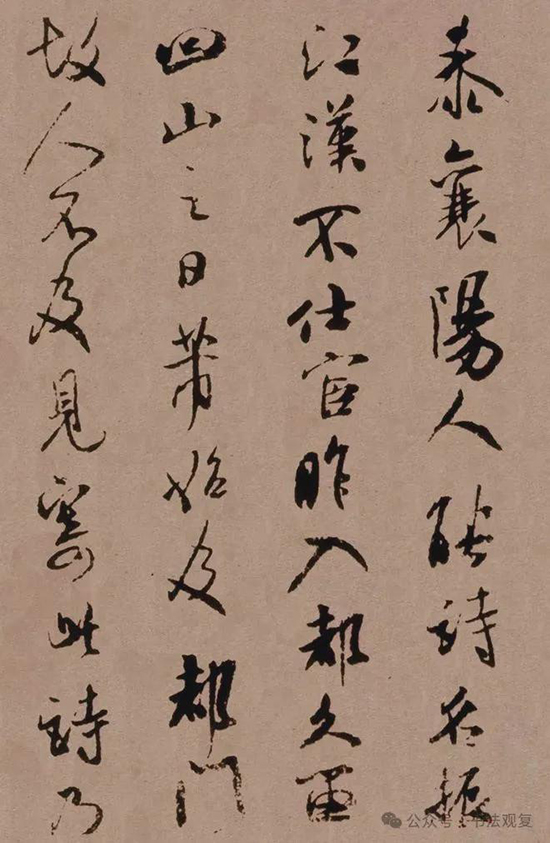 泰襄阳人能诗名振
江汉不仕宦昨入都久留
回山之日芾始及都門
故人不及見寄此詩乃
公众号·书法观复